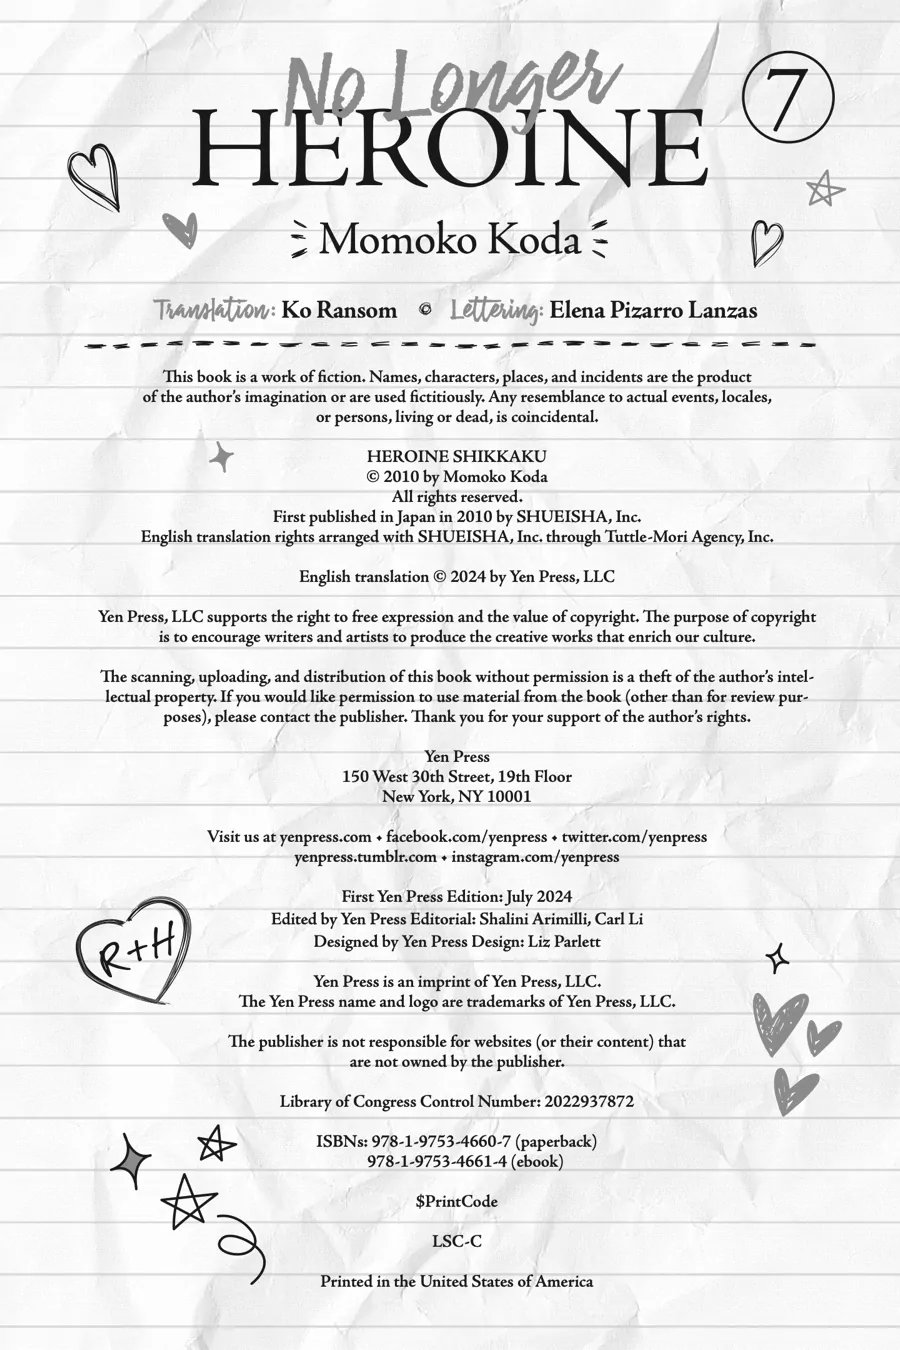 No Longer
HEROINE
7
Momoko Koda
Translation: Ko Ransom Lettering: Elena Pizarro Lanzas
This book is a work of fiction. Names, characters, places, and incidents are the product
of the author's imagination or are used fictitiously. Any resemblance to actual events, locales,
or persons, living or dead, is coincidental.
HEROINE SHIKKAKU
© 2010 by Momoko Koda
All rights reserved.
First published in Japan in 2010 by SHUEISHA, Inc.
English translation rights arranged with SHUEISHA, Inc. through Tuttle-Mori Agency, Inc.
English translation © 2024 by Yen Press, LLC
Yen Press, LLC supports the right to free expression and the value of copyright. The purpose of copyright
is to encourage writers and artists to produce the creative works that enrich our culture.
The scanning, uploading, and distribution of this book without permission is a theft of the author's intel-
lectual property. If you would like permission to use material from the book (other than for review pur-
poses), please contact the publisher. Thank you for your support of the author's rights.
Yen Press
150 West 30th Street, 19th Floor
New York, NY 10001
Visit us at yenpress.com • facebook.com/yenpress • twitter.com/yenpress
yenpress.tumblr.com • instagram.com/yenpress
First Yen Press Edition: July 2024
Edited by Yen Press Editorial: Shalini Arimilli, Carl Li
Designed by Yen Press Design: Liz Parlett
R+H
Yen Press is an imprint of Yen Press, LLC.
The Yen Press name and logo are trademarks of Yen Press, LLC.
The publisher is not responsible for websites (or their content) that
are not owned by the publisher.
Library of Congress Control Number: 2022937872
ISBNs: 978-1-9753-4660-7 (paperback)
978-1-9753-4661-4 (ebook)
$PrintCode
LSC-C
Printed in the United States of America